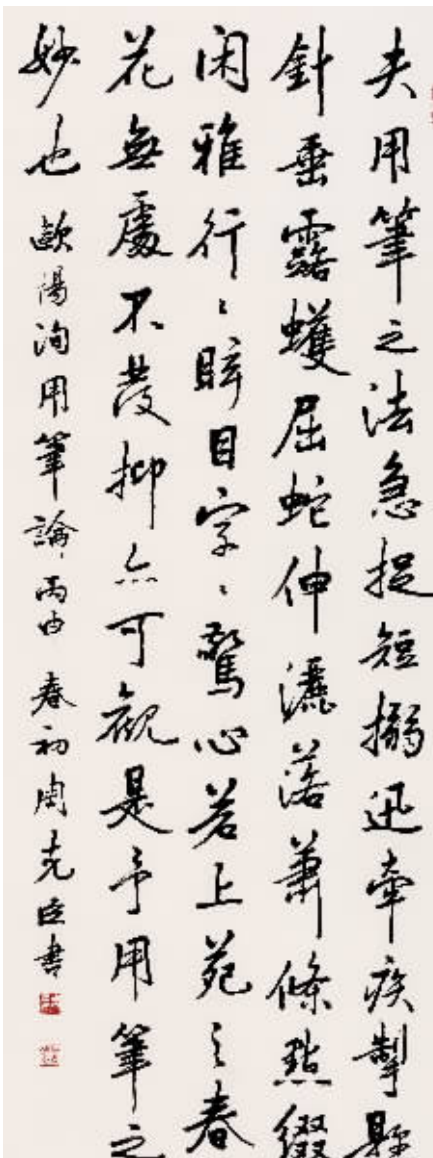 夫用筆之法急捉短搦迅牽疾掣懸
針垂露蠖屈蛇伸灑落蕭條點綴
閑雅行〻眩目字〻驚心若上苑之春
花無處不發抑亦可觀是予用筆之
妙也
歐陽洵用筆論丙申春初周克臣書